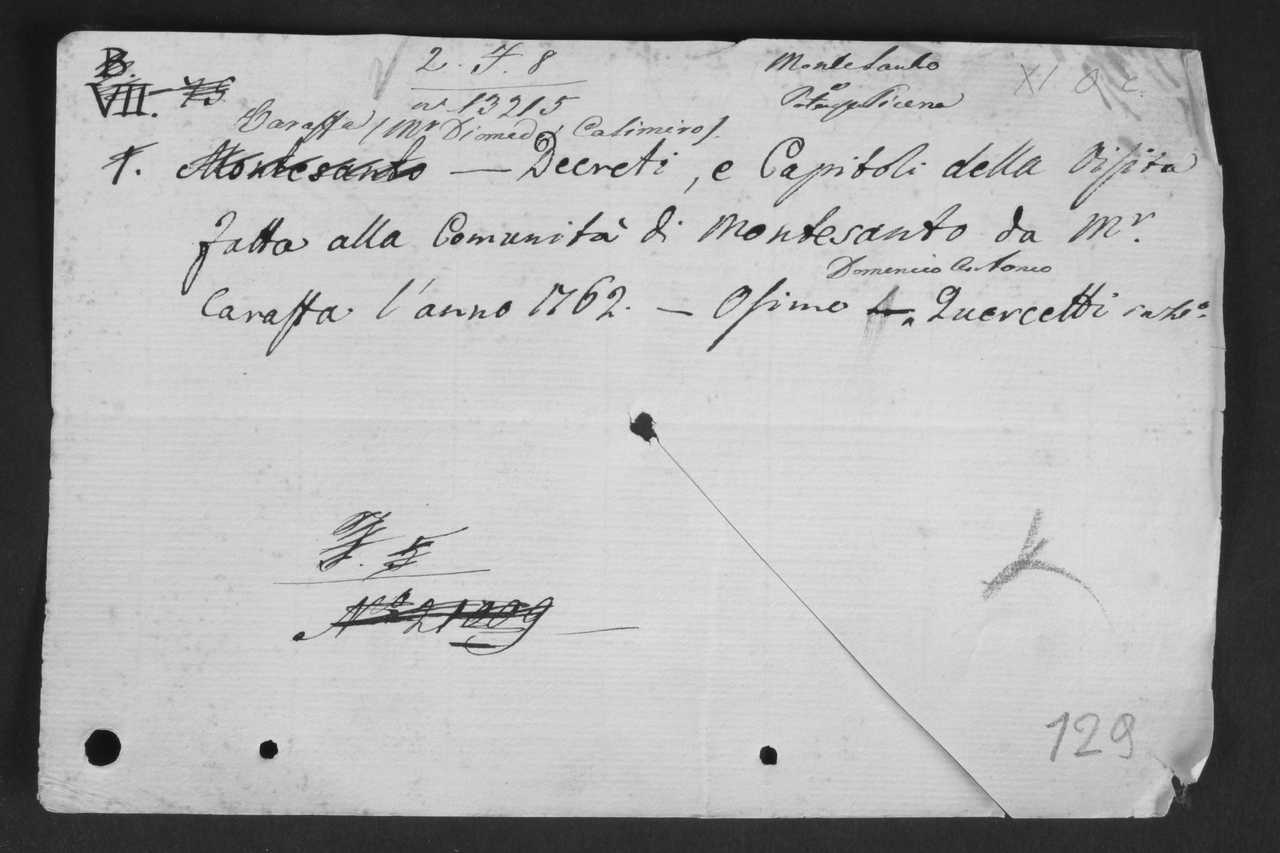 B.
VII. 75
2. F. 8
n.° 13215
Montesanto
Potenza Picena
XI. a c.
Caraffa (Mr Diomede Casimiro).
f. Montesanto — Decreti, e Capitoli della Visita
fatta alla Comunità di Montesanto da Mr.
Domenico Antonio
Caraffa l'anno 1762. — Osimo Quercetti
F. 5
N.° 21009
129